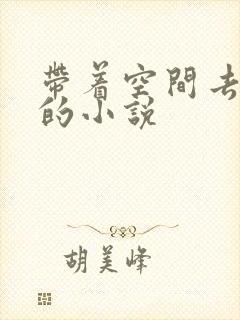 帶着空間去
的小說
胡美峰